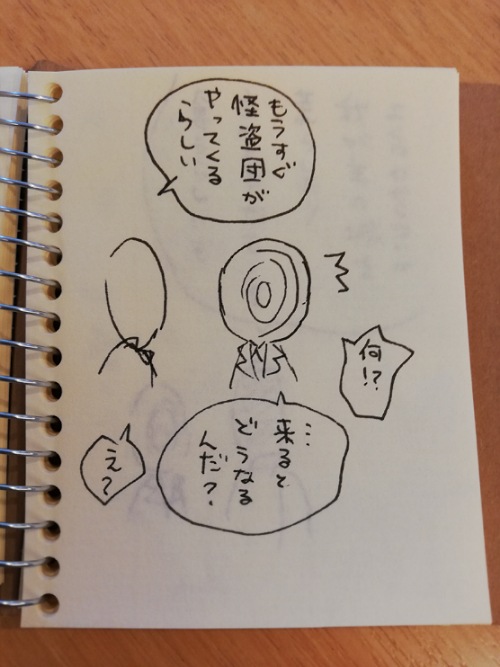 もうすぐ
怪盗団が
やってくる
らしい
何!?
…来ると
どうなる
んだ?
え?